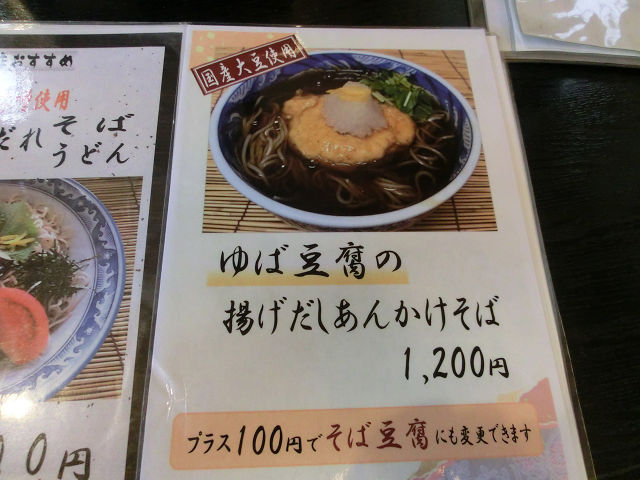 おすすめ
使用
だれそば
うどん
10円
国産大豆使用
ゆば豆腐の
揚げだしあんかけそば
1,200円
プラス100円でそば豆腐にも変更できます